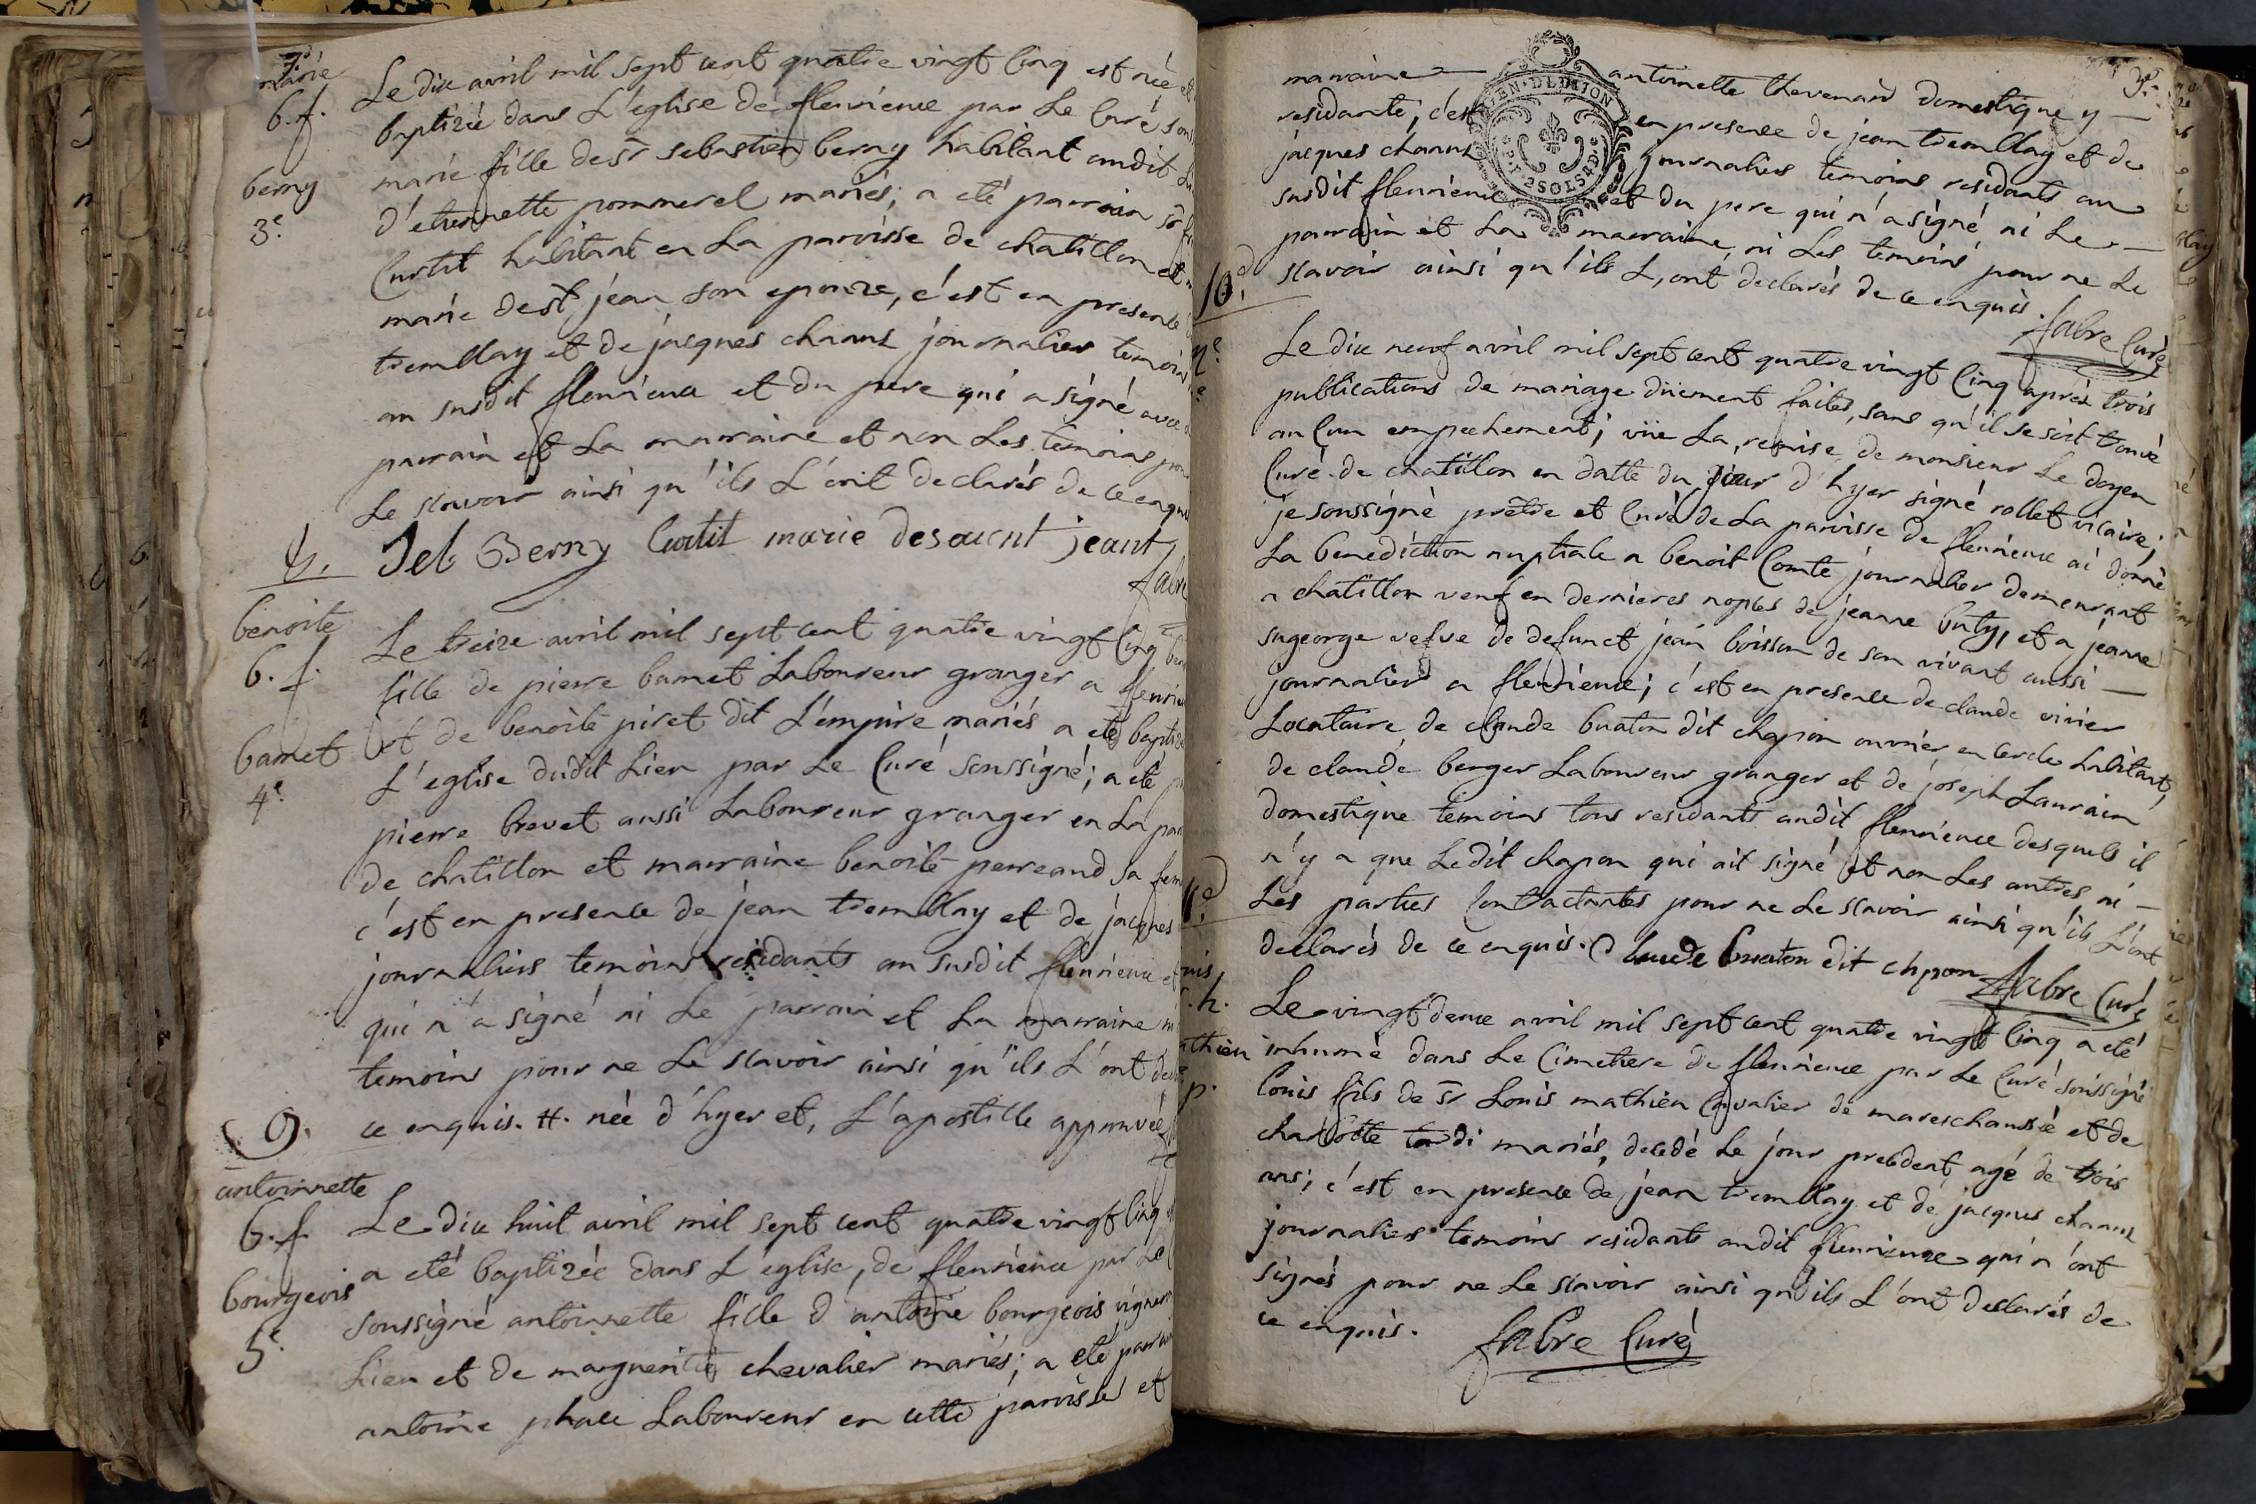 marie
b. f.
berny
3.e
Le dix avril mil sept cent quatre vingt cinq est née et
baptizée dans L'église de fleurieux par Le Curé sous
marie fille de sr sebastien berny habitant audit Li
d'etiennette pommerel mariés; a eté parrain sr
Curtit habitant en La parroisse de chatillon et
marie de st jean son epouze, c'est en presence
tremblay et de jacques charnl journalier temoin
au susdit fleurieux et du pere qui a signé avec
parrain et La marraine et non Les temoins pou
Le scavoir ainsi qu'ils L'ont declarés de ce enquis
Seb Berny Curtit marie desaint jeant
fabre
benoite
b. f.
bamet
4.e
Le treize avril mil sept cent quatre vingt cinq
fille de pierre bamet Laboureur granger a fleurieu
et de benoite piret dit L'empire mariés a eté baptizé
L'eglise dudit Lieu par Le Curé soussigné; a eté
pierre brevet aussi Laboureur granger en La par
de chatillon et marraine benoite perreaud sa fem
c'est en presence de jean tremblay et de jacques
journaliers temoins residants au susdit fleurieux et
qui n'a signé ni Le parrain et La marraine ni
temoins pour ne Le scavoir ainsi qu'ils L'ont de
ce enquis. #. née d'hyer et, L'apostille approuvée
9.
antoinette
b. f.
bourgeois
5.e
Le dix huit avril mil sept cent quatre vingt cinq
a eté baptizée dans L'eglise, de fleurieux par Le
soussigné antoinette fille d'antoine bourgeois vigneron
Lieu et de marguerite chevalier mariés; a eté parrain
antoine phale Laboureur en cette parroisse et
3.e
marraine antoinette thevenard domestique y
residante; c'est en presence de jean tremblay et de
jacques charnl journaliers temoins residants au
susdit fleurieux et du pere qui n'a signé ni Le
parrain et La marraine, ni Les temoins pour ne Le
scavoir ainsi qu'ils L'ont declarés de ce enquis.
fabre Curé
10.
Le dix neuf avril mil sept cent quatre vingt Cinq après trois
publications de mariage düement faites, sans qu'il se soit trouvé
aucun empechement; vüe La remise de monsieur Le doyen
Curé de chatillon en datte du jour d'hyer signé rollet vicaire;
je soussigné prêtre et Curé de La parroisse de fleurieux ai donné
La benediction nuptiale a benoit Comte journalier demeurant
a chatillon veuf en dernieres noples de jeanne buty, et a jeanne
sugeorge vefve de defunct jean boisson de son vivant aussi
journalier a fleurieux; c'est en presence de claude vivier
Locataire de claude buaton dit chapon ouvrier en cercle habitant,
de claude berger Laboureur granger et de joseph Laurain
domestique temoins tous residants audit fleurieux desquels il
n'y a que Ledit chapon qui ait signé et non Les autres ni
Les parties Contractantes pour ne Le scavoir ainsi qu'ils L'ont
declarés de ce enquis. Claude buaton dit chpon fabre Curé
. h.
athieu
p.
Le vingt deux avril mil sept cent quatre vingt Cinq a eté
inhumé dans Le Cimetiere de fleurieux par Le Curé soussigné
Louis fils de sr Louis mathieu Cavalier de mareschaussée et de
charlotte tardi mariés, decedé Le jour precedent agé de trois
ans; c'est en presence de jean tremblay et de jacques charnl
journaliers temoins residants audit fleurieux qui n'ont
signés pour ne Le scavoir ainsi qu'ils L'ont declarés de
ce enquis. fabre Curé